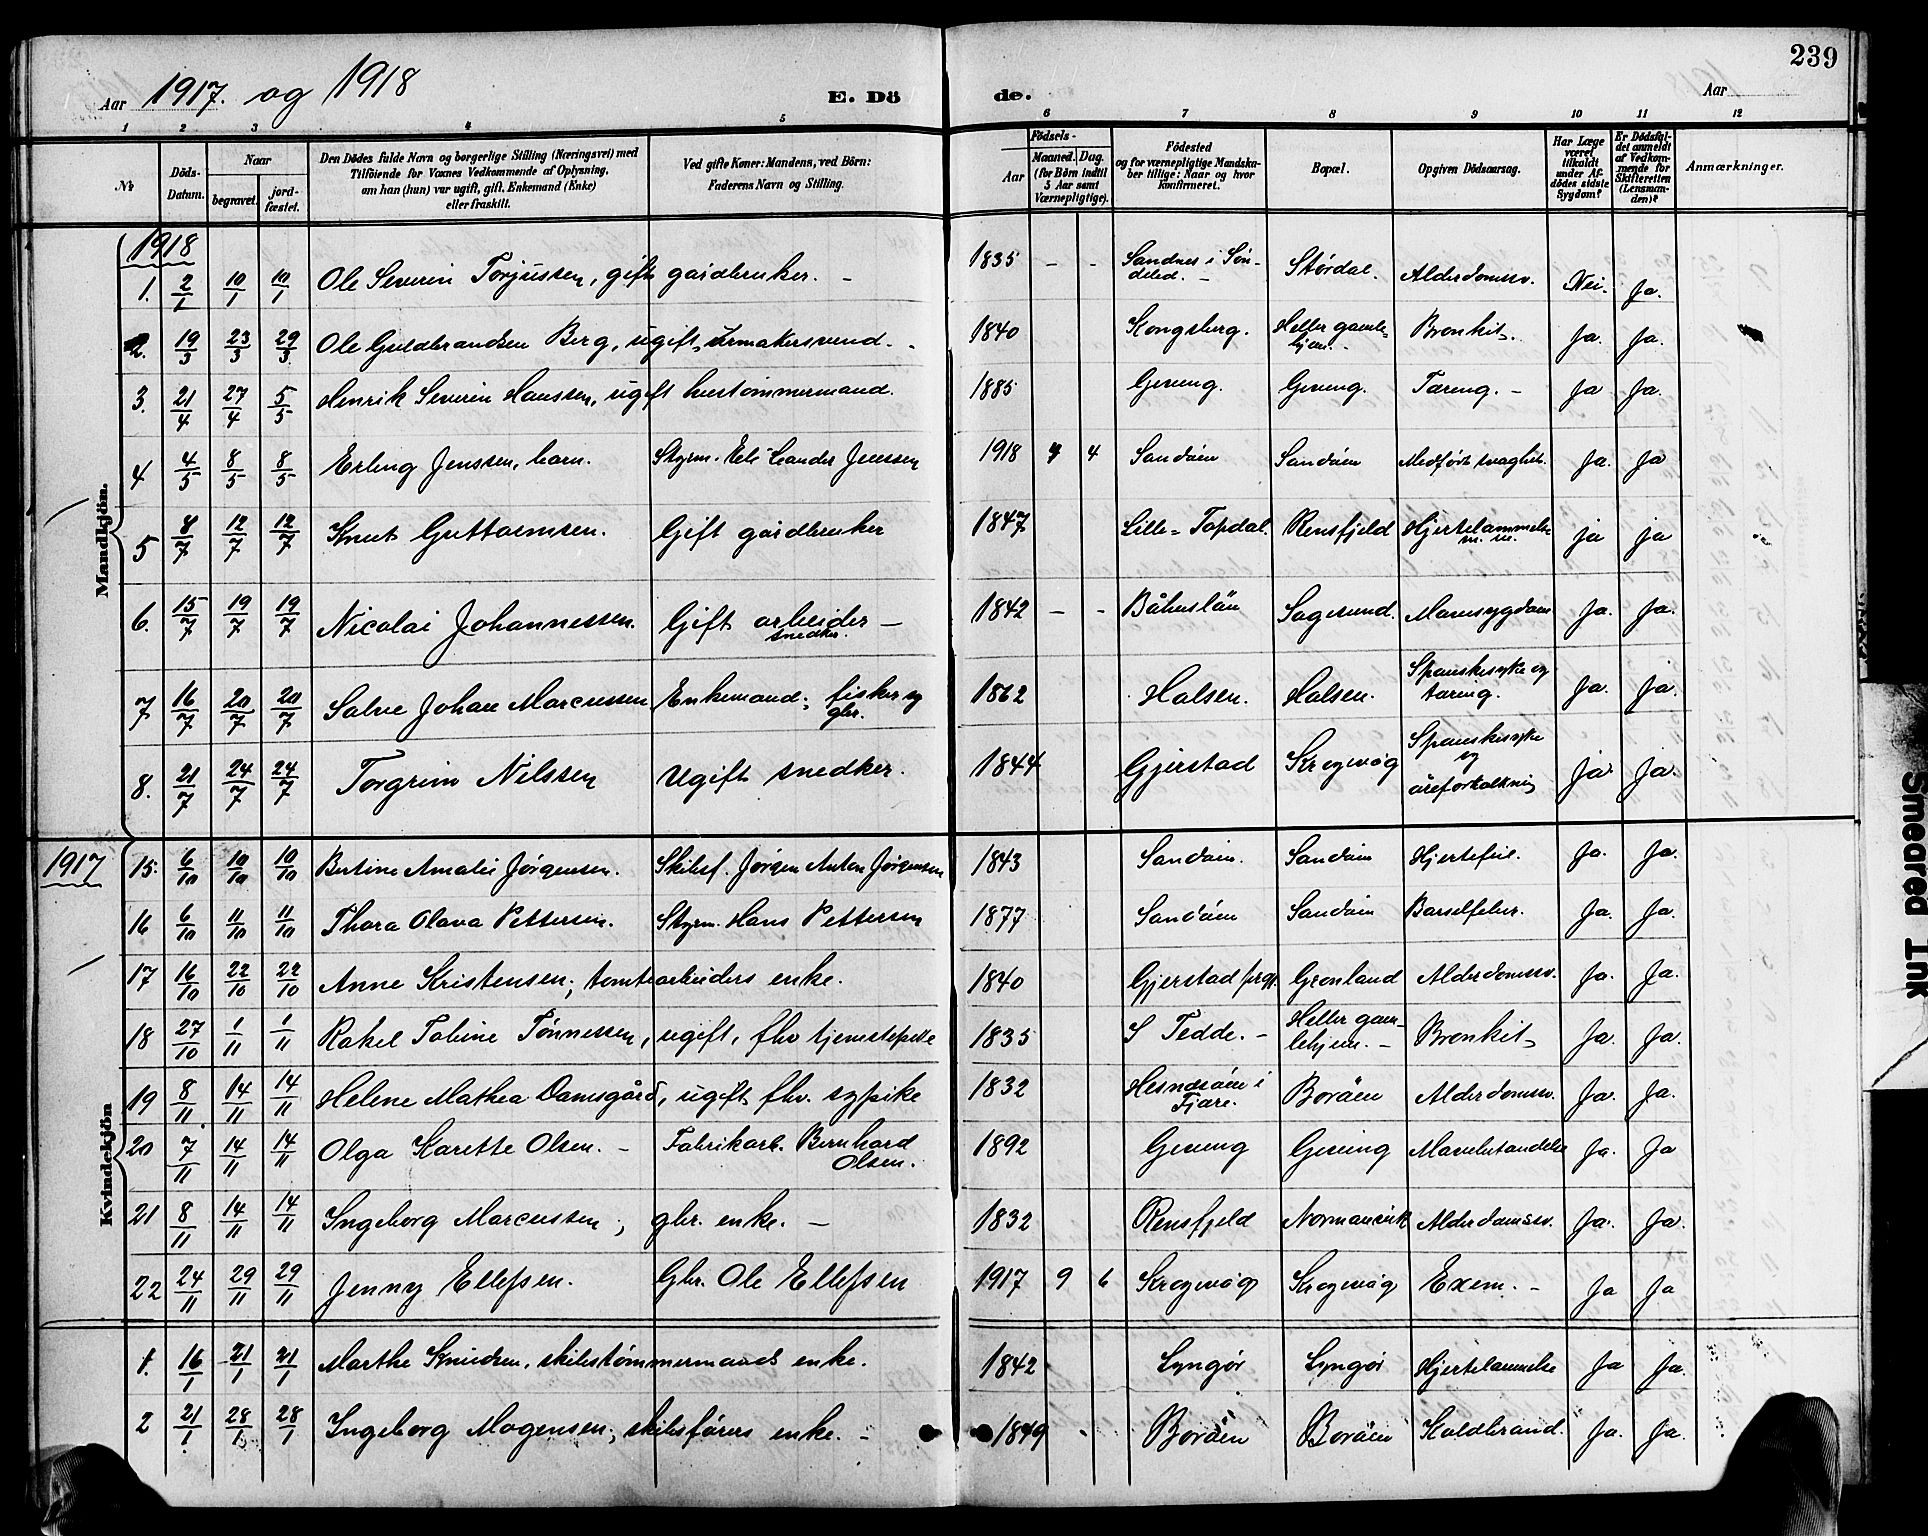 239
Aar 1917. og 1918
E. Dö
de.
Aar
1 2 3 4 5 6 7 8 9 10 11 12
No
Döds-Datum.
Naar
begravet.
jord-fæstet.
Den Dödes fulde Navn og borgerlige Stilling (Næringsvei) med
Tilföiende for Voxnes Vedkommende af Oplysning,
om han (hun) var ugift, gift, Enkemand (Enke)
eller fraskilt.
Ved gifte Koner: Mandens, ved Börn:
Faderens Navn og Stilling.
Födsels-
Aar
Maaned. Dag.
(for Börn indtil
5 Aar samt
Værnepligtige).
Födested
og for værnepligtige Mandska-
ber tillige: Naar og hvor
konfirmeret.
Bopæl.
Opgiven Dödsaarsag.
Har Læge
været
tilkaldt
under Af-
dödes sidste
Sygdom?
Er Dödsfal-
det anmeldt
af Vedkom-
mende for
Skifteretten
(Lensman-
den)?
Anmærkninger.
Mandkjön.
1918
1. 2/1 10/1 10/1 Ole Severin Torjussen, gift gardbruker. - 1835 - - Sandnes i Søn-
deled. - Størdal. Alderdomssv. Nei. Ja.
2. 19/3 23/3 29/3 Ole Guldbrandsen Berg, ugift, urmakersvend. 1840 Kongsberg. Heller gamle-
hjem. - Bronkit. Ja. Ja.
3. 21/4 27/4 5/5 Henrik Severin Hanssen, ugift hustømmermand. 1885 Gjeving. Gjeving. Tæring. - Ja Ja.
4 4/5 8/5 8/5 Erling Jenssen, barn. Styrm. Leander Jenssen 1918 4 4 Sandøen Sandøen Medfødt svaghet. Ja. Ja
5 8/7 12/7 12/7 Knut Guttormsen. Gift gardbruker 1847 Lille-Topdal. Rensfjeld Hjertelammelse
m. m. ja ja
6. 15/7 19/7 19/7 Nicolai Johannessen. Gift arbeider -
snedker. 1842 - - Båhuslän Sagesund. Mavesygdom Ja. Ja.
7 16/7 20/7 20/7 Salve Johan Marcussen Enkemand; fisker og
gbr. 1862 Halsen. Halsen. Spanskesyke og
tæring. Ja. Ja.
8. 21/7 24/7 24/7 Torgrim Nilssen Ugift snedker. 1844 Gjerstad Krogvåg Spanskesyke
og
åreforkalkning Ja. Ja.
Kvindekjön
1917
15. 6/10 10/10 10/10 Bertine Amalie Jørgensen. Skibsf. Jørgen Anton Jørgensen 1843 Sandøen. Sandøen Hjertefeil. Ja. Ja.
16 6/10 11/10 11/10 Thora Olava Pettersen. Styrm. Hans Pettersen 1877 Sandøen Sandøen Barselfeber. Ja. Ja.
17 16/10 22/10 22/10 Anne Kristensen; tomtearbeiders enke. 1840 Gjerstad prgj. Grønland Alderdomssv. Ja. Ja.
18 27/10 1/11 1/11 Rakel Tobine Tønnessen, ugift, fhv tjenestepike 1835 S Tedde. - Heller gam-
lehjem. - Bronkit Ja. Ja.
19 8/11 14/11 14/11 Helene Mathea Damsgård, ugift fhv. sypike 1832 Hesnesøen i
Fjære. Borøen Alderdomssv. Ja. Ja.
20 7/11 14/11 14/11 Olga Karette Olsen. - Fabrikarb. Bernhard
Olsen. 1892 Gjeving Gjeving Mavebetændelse Ja. Ja
21 8/11 14/11 14/11 Ingeborg Marcussen; gbr. enke. - 1832 Rensfjeld Normansvik Alderdomssv. Ja. Ja.
22 24/11 29/11 29/11 Jenny Ellefsen. Gbr. Ole Ellefsen 1917 9 6 Krogvåg Krogvåg Exem. - Ja Ja
1. 16/1 21/1 21/1 Marthe Knudsen, skibstømmermands enke. 1842 Lyngør Lyngør Hjertelammelse Ja Ja.
2 21/1 28/1 28/1 Ingeborg Mogensen; skibsførers enke. - 1849 Borøen Borøen Koldbrand. Ja. Ja.
Smeared Ink